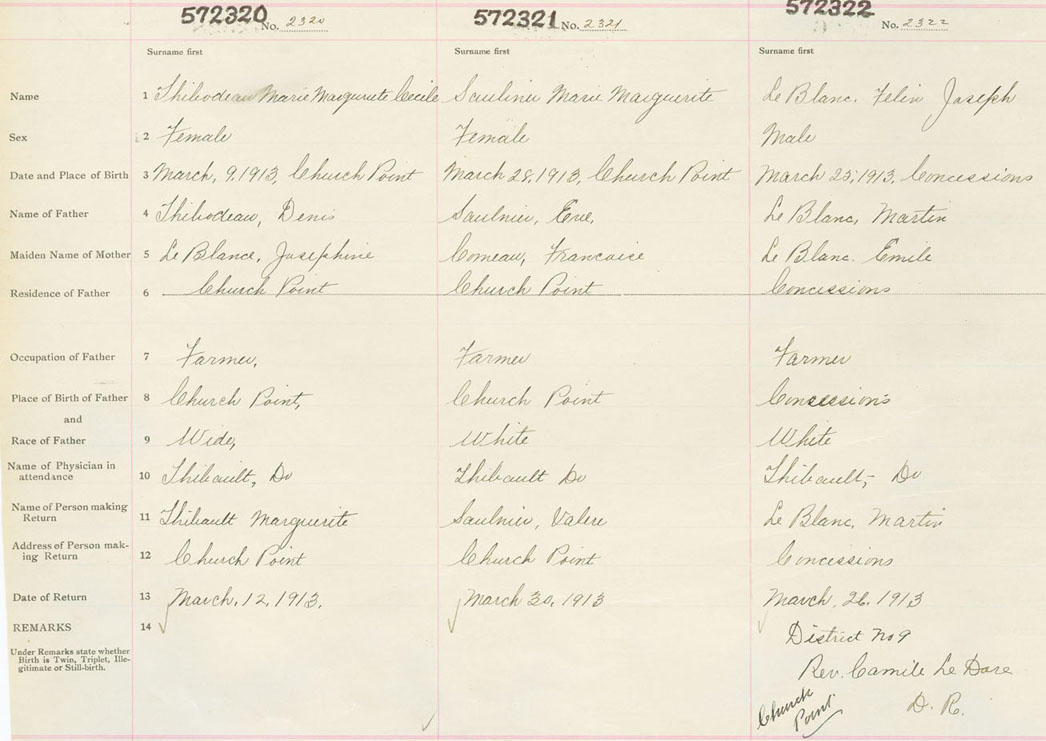 572320 No. 2320 572321 No. 2321 572322 No. 2322
Surname first Surname first Surname first
Name 1 Thibodeau Marie Marguerite Cecile Saulinier Marie Marguerite Le Blanc. Felix Joseph
Sex 2 Female Female Male
Date and Place of Birth 3 March, 9, 1913, Church Point March 28, 1913, Church Point March 25, 1913, Concessions
Name of Father 4 Thibodeau, Denis Saulnier, Eve, Le Blanc, Martin
Maiden Name of Mother 5 Le Blanc, Josephine Comeau, Francoise Le Blanc. Emile
Residence of Father 6 Church Point Church Point Concessions
Occupation of Father 7 Farmer, Farmer Farmer
Place of Birth of Father 8 Church Point, Church Point Concessions
and
Race of Father 9 Wide, White White
Name of Physician in
attendance 10 Thibault, Dr Thibault Dr Thibault, Dr
Name of Person making
Return 11 Thibault Marguerite Saulnier, Valere Le Blanc, Martin
Address of Person mak-
ing Return 12 Church Point Church Point Concessions
Date of Return 13 March, 12, 1913. March 30, 1913 March, 26, 1913
REMARKS 14 District No 9
Under Remarks state whether
Birth is Twin, Triplet, Ille-
gitimate or Still-birth.
Rev. Camile Le Dore
D. R.
Church
Point